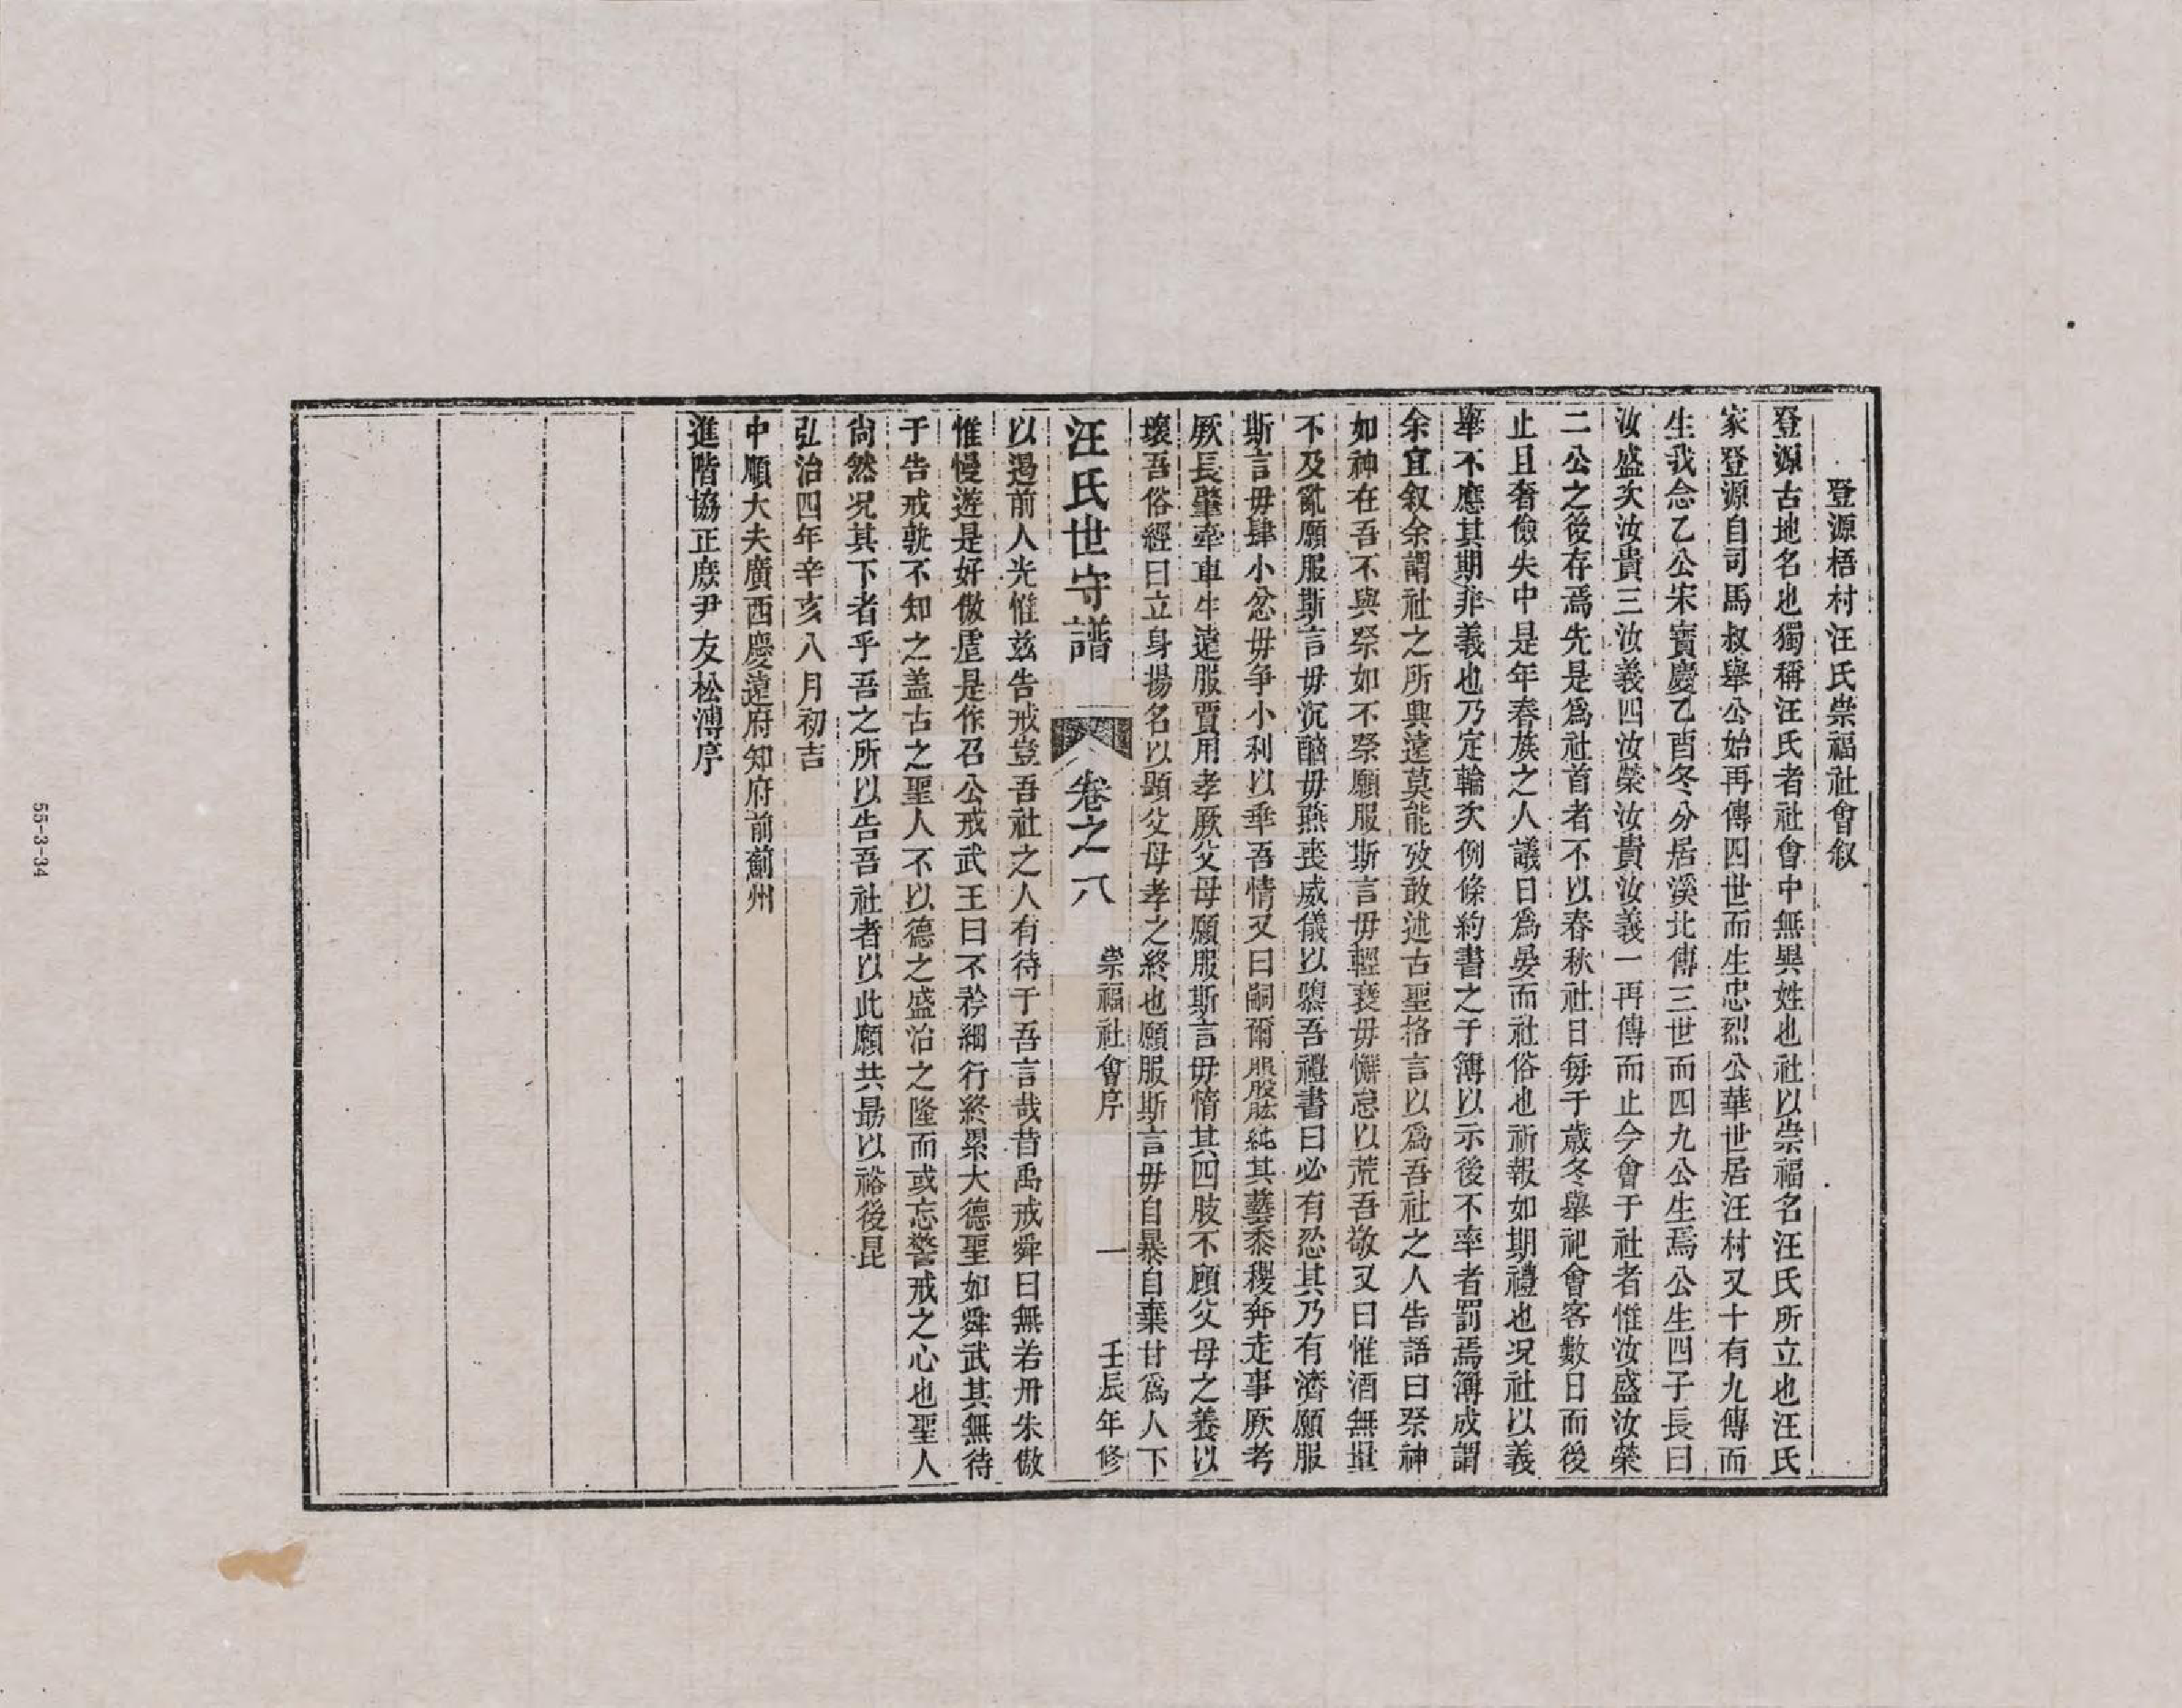 登源梧村汪氏崇福社會叙
登源古地名也獨稱汪氏者社會中無異姓也社以崇福名汪氏所立也汪氏
家登源自司馬叔舉公始再傳四世而生忠烈公華世居汪村又十有九傳而
生我念乙公宋寶慶乙酉冬分居溪北傳三世而四九公生焉公生四子長曰
汝盛次汝貴三汝義四汝榮汝貴汝義一再傳而止今會于社者惟汝盛汝榮
二公之後存焉先是爲社首者不以春秋社日每于歲冬舉祀會客數日而後
止且奢儉失中是年春族之人議日爲晏而社俗也祈報如期禮也况社以義
舉不應其期非義也乃定輪次例條約書之于簿以示後不率者罰焉簿成謂
余宜叙余謂社之所興遠莫能攷敢述古聖格言以爲吾社之人告語曰祭神
如神在吾不與祭如不祭願服斯言毋輕褻毋懈怠以荒吾敬又曰惟酒無量
不及亂願服斯言毋沉酗毋燕喪威儀以隳吾禮書曰必有忍其乃有濟願服
斯言毋肆小忿毋爭小利以乖吾情又曰嗣爾股肱純其藝黍稷奔走事厥考
厥長肇牽車牛遠服賈用孝厥父母願服斯言毋惰其四肢不顧父母之養以
壞吾俗經曰立身揚名以顯父母孝之終也願服斯言毋自暴自棄甘爲人下
汪氏世守譜 卷之八 崇福社會序 一 壬辰年修
以遏前人光惟兹告戒豈吾社之人有待于吾言哉昔禹戒舜曰無若丹朱傲
惟慢遊是好傲虐是作召公戒武王曰不矜細行終累大德聖如舜武其無待
于告戒孰不知之盖古之聖人不以德之盛治之隆而或忘警戒之心也聖人
尚然况其下者乎吾之所以告吾社者以此願共勗以裕後昆
弘治四年辛亥八月初吉
中順大夫廣西慶遠府知府前薊州
進階協正庶尹友松溥序
55-3-34